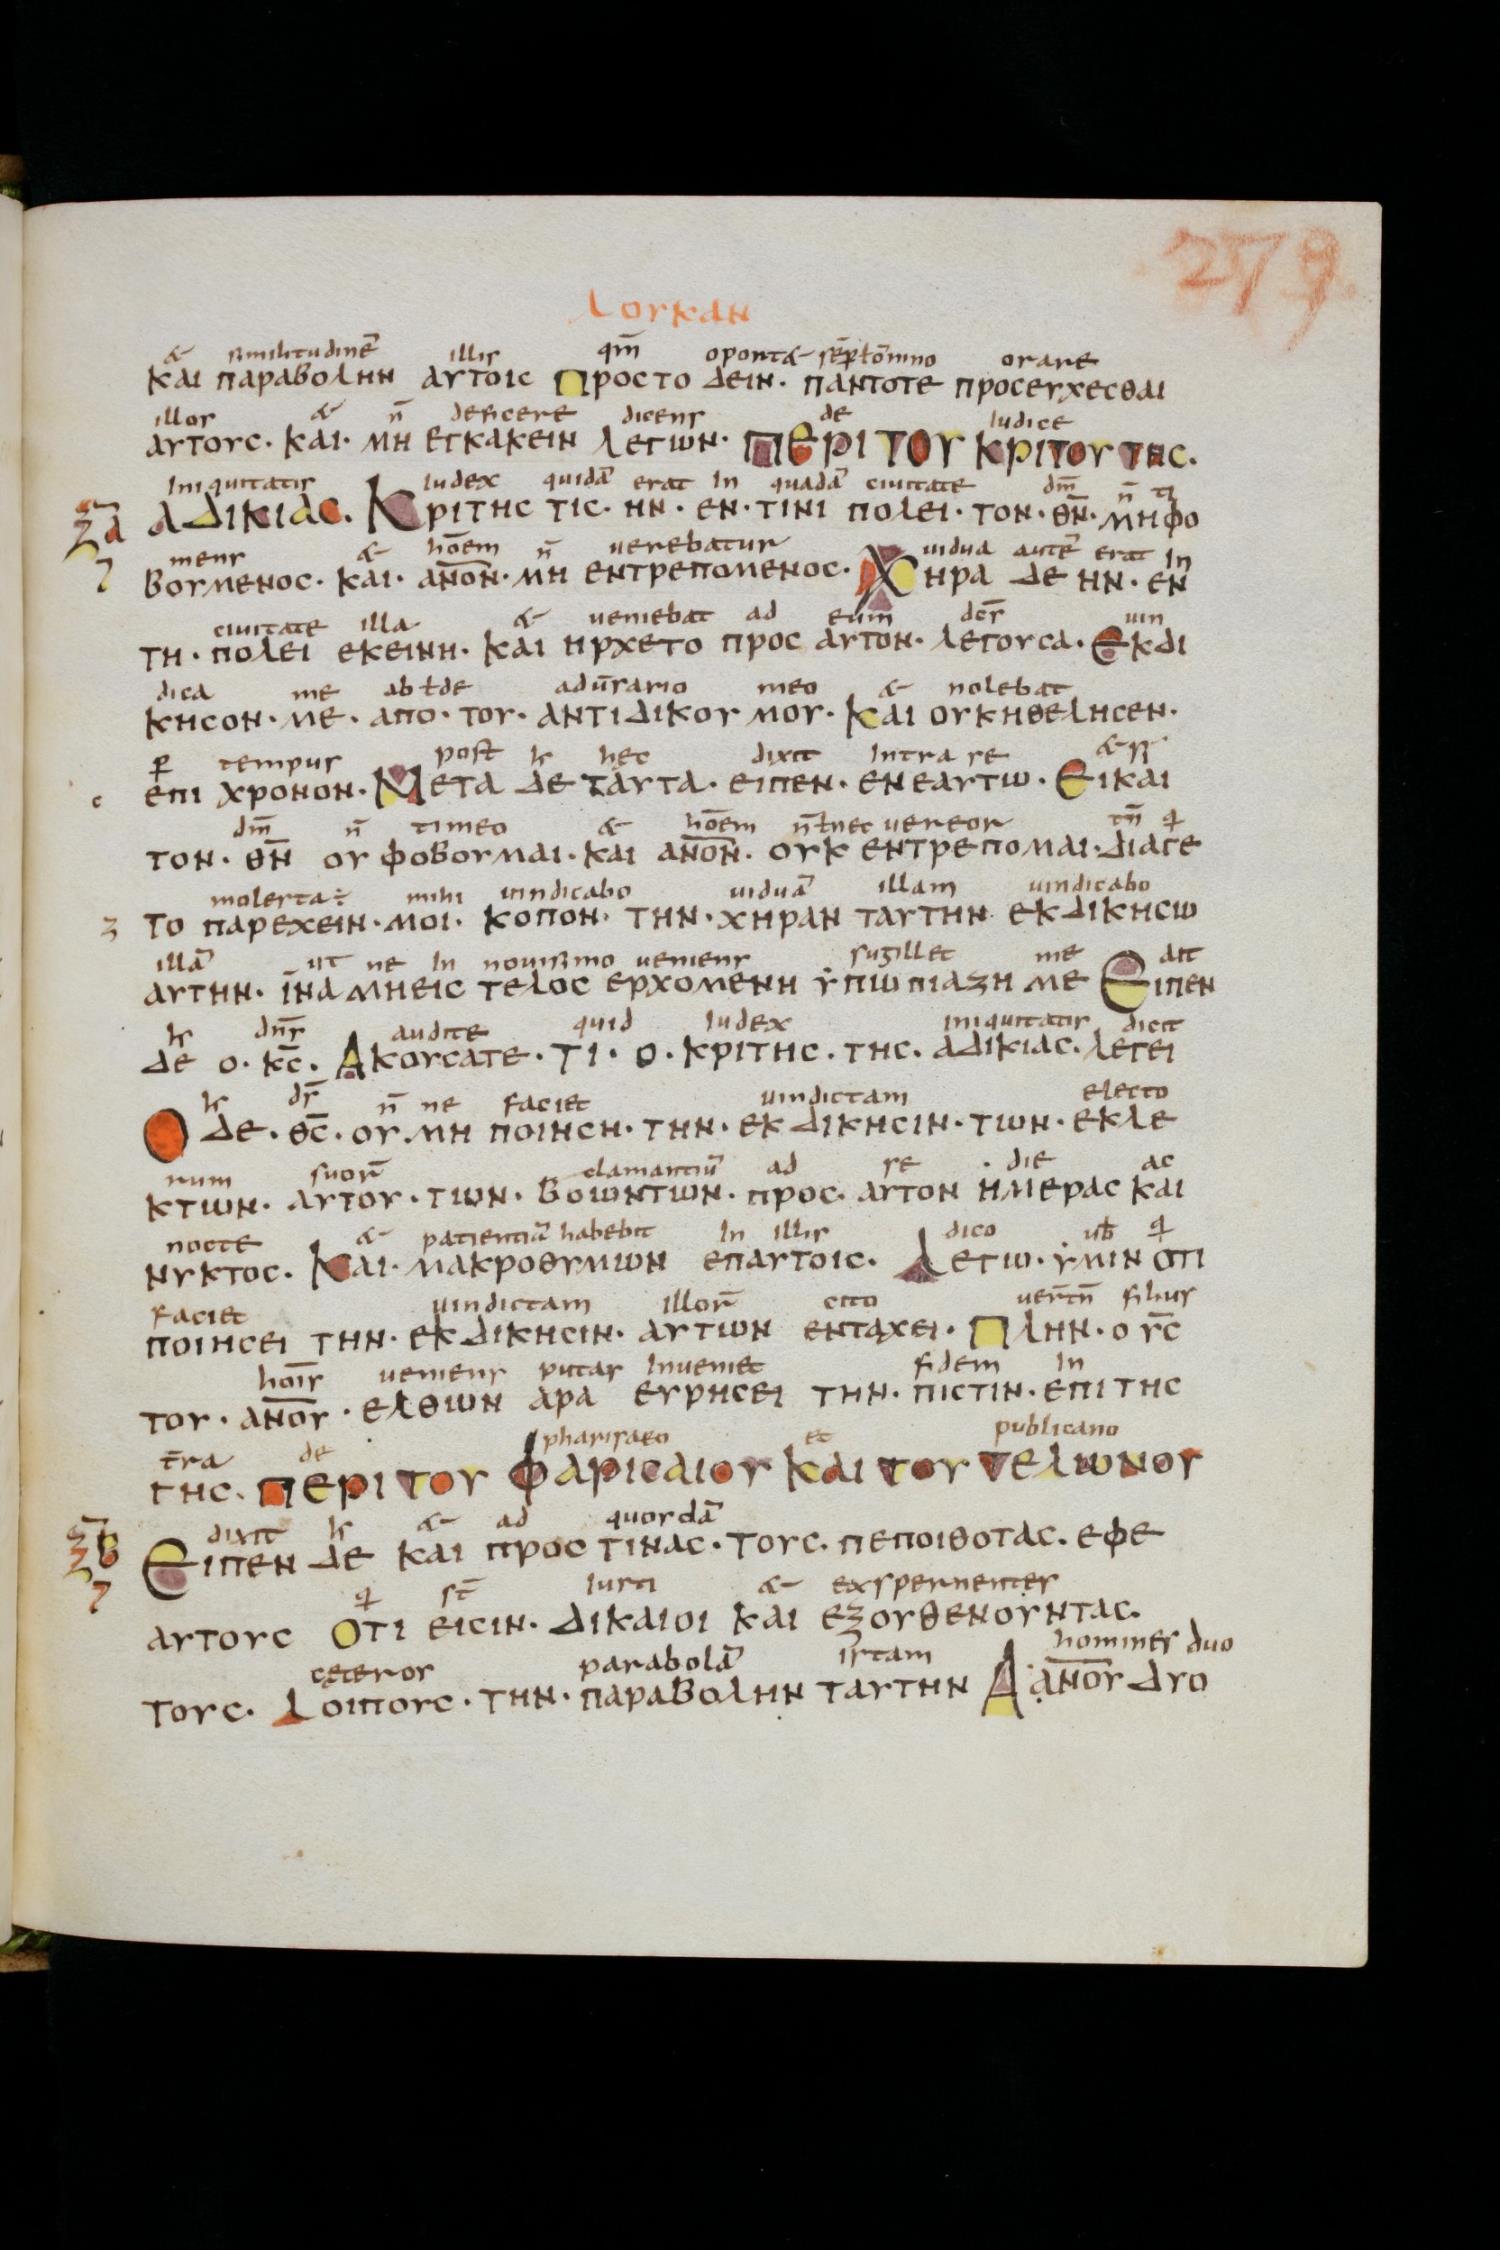 279
λογκαν
& similitudinē illis qm̄ oportet sēp ł ōmino orare
και παραβολην αυτοις προς το δειν· παντοτε προσευχεσθαι
illos & n̄ deficere dicens de iudice
αυτους· και· μη εγκακειν λεγων· περι του κριτου της·
iniquitatis iudex quidā erat in quadā ciuitate dm̄ n̄ ti
ξᾱ αδικιας. κριτης τις· ην· εν· τινι πολει· τον· θ̅ν̅· μη φο
mens & hōem n̄ verebatur uidua autē erat in
βουμενος· και· α̅ν̅ο̅ν̅· μη εντρεπομενος· χηρα δε ην· εν
ciuitate illa & ueniebat ad eum dc̄s uin
τη· πολει εκεινη· και ηρχετο προς αυτον· λεγουσα· εκδι
dica me ab ł de adūsario meo & nolebat
κησον· με· απο· του· αντιδικου μου· και ουκ ηθελησεν·
p̄ tempus post h hec dixit intra se & si
επι χρονον· μετα δε ταυτα· ειπεν· εν εαυτω· ει και
dm̄ n̄ timeo & hōem n̄ ł nec uereor tn̄ q
τον· θ̅ν̅ ου φοβουμαι· και α̅ν̅ο̅ν̅· ουκ εντρεπομαι· διαγε
molesta ÷ mihi uindicabo uiduā illam uindicabo
το παρεχειν· μοι· κοπον· την· χηραν ταυτην εκδικησω
illā ut ne in nouissimo ueniens sugillet me ait
αυτην· ϊνα μη εις τελος ερχομενη υπωπιαζη με ειπεν
h dn̄s audite quid iudex iniquitatis dicit
δε ο· κ̅ς̅· ακουσατε· τι· ο· κριτης· της· αδικιας· λεγει
h ds̄ n̄ ne faciet uindictam electo
ο δε· θ̅ς̅· ου· μη ποιηση· την· εκδικησιν· των· εκλε
rum suor̄ clamantiū ad se die ac
κτων· αυτου· των· βοωντων· προς· αυτον ημερας και
nocte & patientiā habebit in illis dico ub̄ q
νυκτος· και· μακροθυμων επ αυτοις· λεγω· υμιν οτι
faciet uindictam illor̄ cito uerūtn̄ filius
ποιησει την· εκδικησιν· αυτων ενταχει· πλην· ο υ̅ς̅
hōis ueniens putas inueniet fidem in
του· α̅ν̅ο̅υ̅· ελθων αρα ευρησει την· πιστιν· επι της
t̄ra de pharisaeo et publicano
γης· περι του φαρισαιου και του τελωνου
dixit h & ad quosdā
ξβ̄ ειπεν δε και προς τινας· τους· πεποιθοτας· εφε
q st̄ iusti & exspernentes
αυτους οτι εισιν· δικαιοι και εξουθενουντας·
ceteros parabolā istam homines duo
τους· λοιπους· την· παραβολην ταυτην α̅ν̅ο̅υ̅ δυο